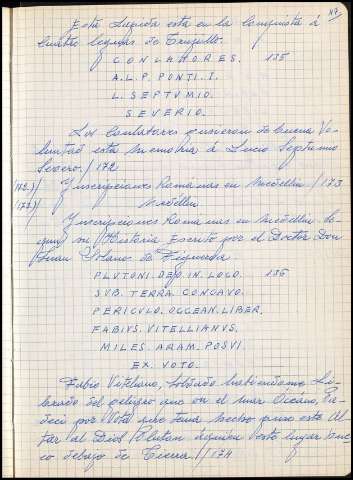 Está lapida esta en la Conquista á
cuatro leguas de Trugillo.
CONLABORES. 135
A.L.P. PONTI.I.
L. SEPTVMIO.
SEVERIO.
Los Cantatores pusieron de buena Vo-
luntad esta memoria á Lucio Septumio
Severo. / 172
172)/ Ynscripciones Romanas en Medellin / 173
173)/ Medellin
Ynscripciones Romanas en Medellin se-
gun su Historia Escrito por el Doctor Don
Juan Solano de Figueroa.
PLVTONI. DEO. IN. LOCO. 136
SVB. TERRA. CONCAVO.
PERICVLO. OCCEAN. LIBER.
FABIVS. VITELLIANVS.
MILES. ARAM. POSVI.
EX. VOTO.
Fabio Viteliano, soldado habiendome li-
brado del peligro que en el mar Oceano, Pa-
deci por Voto que tenia hecho puse esta Al-
tar al Dios Pluton en este lugar
debajo de tierra. / 174